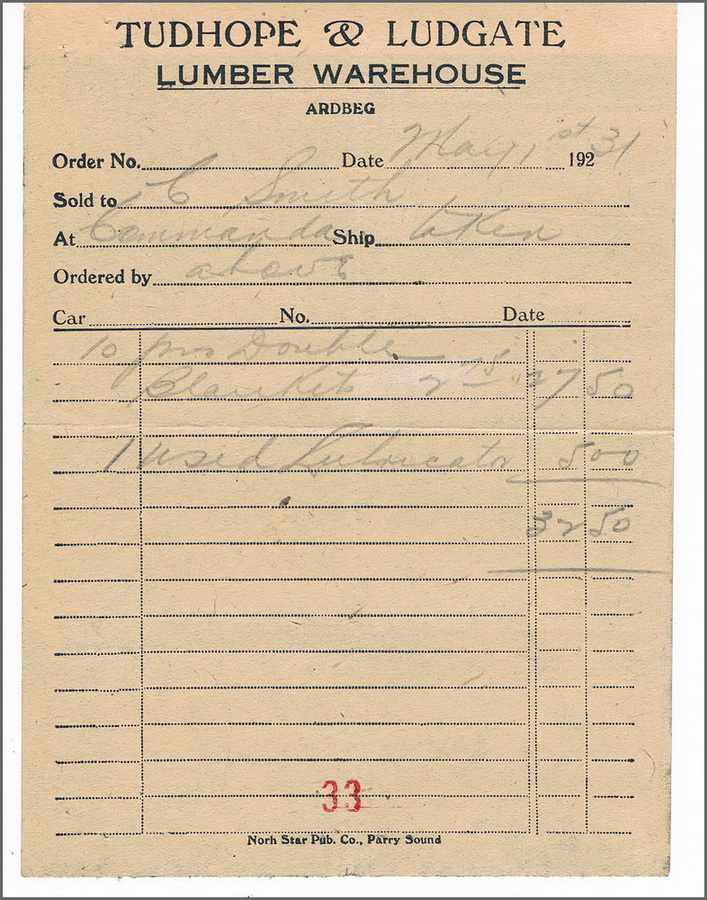 TUDHOPE & LUDGATE
LUMBER WAREHOUSE
ARDBEG
Order No. Date May 1st 192 31
Sold to C Smith
At Commanda Ship taken
Ordered by above
Car No. Date
10 prs Double
Blankets 2 75 27 50
1 used Lubricator 5 00
32 50
33
Norh Star Pub. Co., Parry Sound